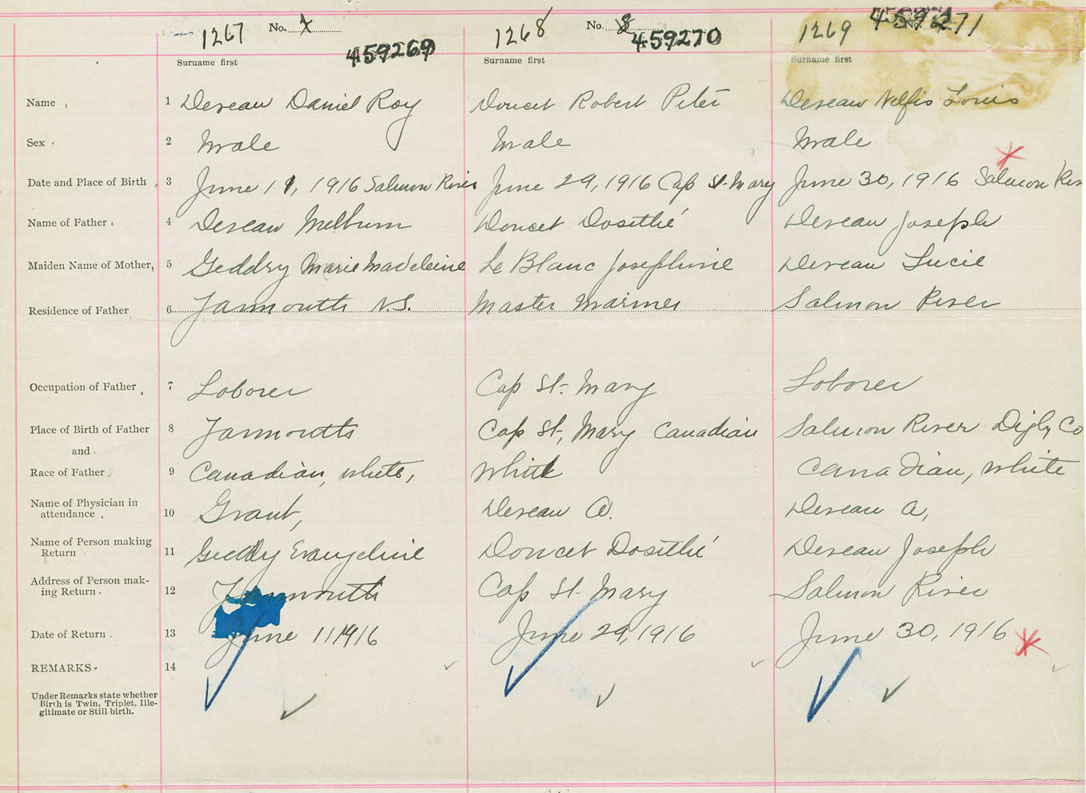 1267 No. 459269 1268 No. 8 459270 1269 459271
Surname first Surname first Surname first
Name 1 Deveau Daniel Roy Doucet Robert Peter Deveau Louis
Sex 2 Male Male Male
Date and Place of Birth 3 June 11, 1916 Salmon River June 29, 1916 Cap St. Mary June 30, 1916 Salmon River
Name of Father 4 Deveau Melburn Doucet Dosithé Deveau Joseph
Maiden Name of Mother, 5 Geddry Marie Madeleine Le Blanc Josephine Deveau Lucie
Residence of Father 6 Yarmouth N.S. Master Mariner Salmon River
Occupation of Father 7 Laborer Cap St. Mary Laborer
Place of Birth of Father 8 Yarmouth Cap St, Mary Canadian Salmon River Digby Co
and
Race of Father 9 Canadian, white, white Canadian, white
Name of Physician in
attendance 10 Grant, Deveau A. Deveau A,
Name of Person making
Return 11 Geddry Evangeline Doucet Dosithé Deveau Joseph
Address of Person mak-
ing Return 12 Yarmouth Cap St. Mary Salmon River
Date of Return 13 June 11 1916 June 29, 1916 June 30, 1916
REMARKS 14
Under Remarks state whether
Birth is Twin, Triplet, Ille-
gitimate or Still birth.